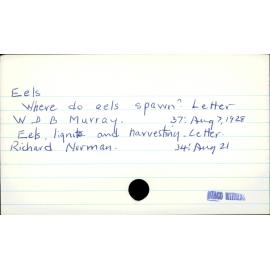 Eels
Where do eels spawn? Letter
W D B Murray. 37: Aug 7, 1928
Eels, lignite and harvesting - Letter.
Richard Norman. 34: Aug 21